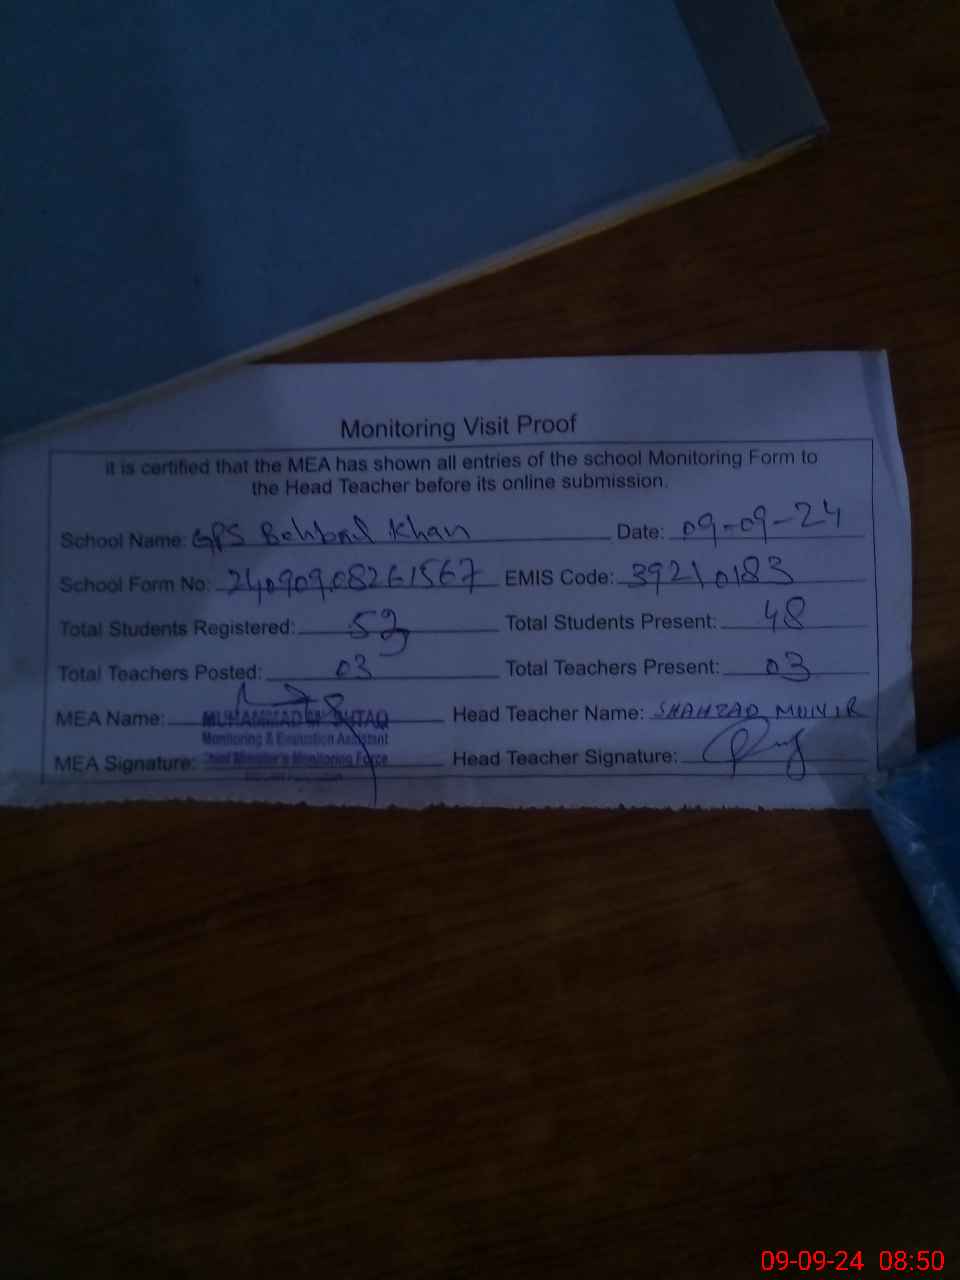 Monitoring Visit Proof
It is certified that the MEA has shown all entries of the school Monitoring Form to
the Head Teacher before its online submission.
School Name: GPS Behbal Khan Date: 09-09-24
School Form No: 24090908261567 EMIS Code: 39210183
Total Students Registered: 52 Total Students Present: 48
Total Teachers Posted: 03 Total Teachers Present: 03
MEA Name: MUHAMMAD Head Teacher Name: SHAHZAD MUNIR
Monitoring & Evaluation Assistant
MEA Signature: Chief Minister's Monitoring Force Head Teacher Signature:
09-09-24 08:50